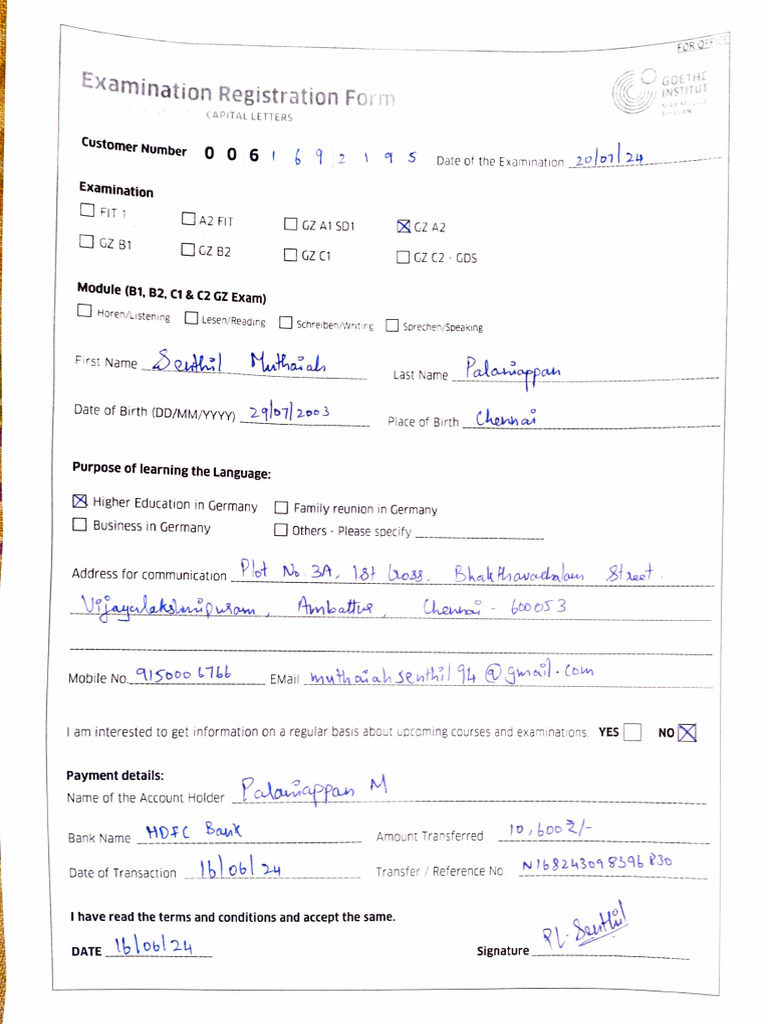 FOR OFFICE
Examination Registration Form
CAPITAL LETTERS
GOETHE
INSTITUT
MAX MUELLER
BHAVAN
Customer Number 0 0 6 1 6 9 2 1 9 5 Date of the Examination 20/07/24
Examination
FIT 1 A2 FIT GZ A1 SD1 ☒ GZ A2
GZ B1 GZ B2 GZ C1 GZ C2 - GDS
Module (B1, B2, C1 & C2 GZ Exam)
Horen/Listening Lesen/Reading Schreiben/Writing Sprechen/Speaking
First Name Senthil Muthaiah Last Name Palaniappan
Date of Birth (DD/MM/YYYY) 29/07/2003 Place of Birth Chennai
Purpose of learning the Language:
☒ Higher Education in Germany Family reunion in Germany
Business in Germany Others - Please specify
Address for communication Plot No. 3A, 1st Cross, Bhakthavadalam Street.
Vijayalakshmipuram, Ambattur, Chennai - 600053
Mobile No. 9150006766 EMail muthaiahsenthil94@gmail.com
I am interested to get information on a regular basis about upcoming courses and examinations. YES NO ☒
Payment details:
Name of the Account Holder Palaniappan M
Bank Name HDFC Bank Amount Transferred 10,600₹/-
Date of Transaction 16/06/24 Transfer / Reference No. N168243098396830
I have read the terms and conditions and accept the same.
DATE 16/06/24 Signature PL. Senthil